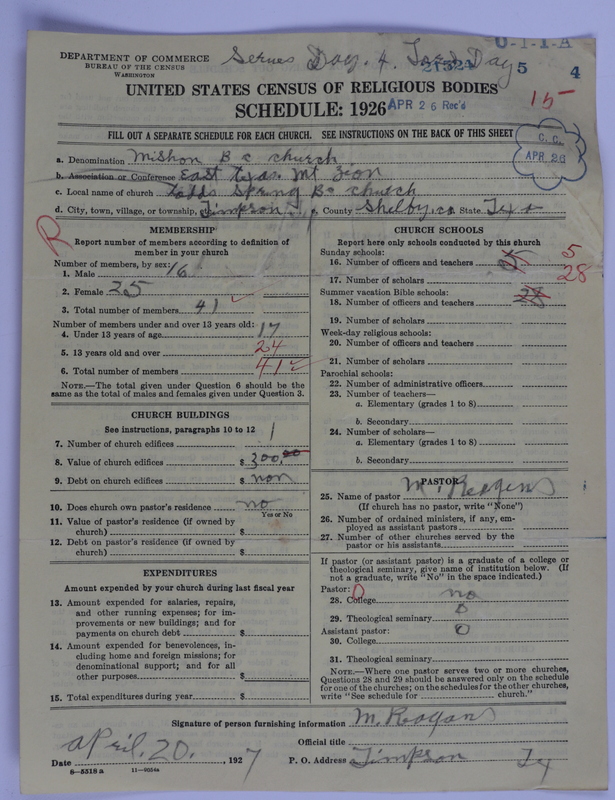 DEPARTMENT OF COMMERCE
BUREAU OF THE CENSUS
WASHINGTON
Serves Day. 4. Day
0-1-1-A
21524 5 4
UNITED STATES CENSUS OF RELIGIOUS BODIES
SCHEDULE: 1926
APR 26 Rec'd
15
FILL OUT A SEPARATE SCHEDULE FOR EACH CHURCH. SEE INSTRUCTIONS ON THE BACK OF THIS SHEET
C. C.
APR 26
a. Denomination Mishon B c church
b. Association or Conference East Texas Mt Zion
c. Local name of church Todds Spring B c church
d. City, town, village, or township, Timpson e. County Shelby co State Tex
R
MEMBERSHIP
Report number of members according to definition of member in your church
Number of members, by sex:
1. Male 16
2. Female 25
3. Total number of members 41
Number of members under and over 13 years old:
4. Under 13 years of age 17
5. 13 years old and over 24
6. Total number of members 41
NOTE.—The total given under Question 6 should be the same as the total of males and females given under Question 3.
CHURCH BUILDINGS
See instructions, paragraphs 10 to 12
7. Number of church edifices 1
8. Value of church edifices $ 300.00
9. Debt on church edifices $ non
10. Does church own pastor's residence no
Yes or No
11. Value of pastor's residence (if owned by church) $
12. Debt on pastor's residence (if owned by church) $
EXPENDITURES
Amount expended by your church during last fiscal year
13. Amount expended for salaries, repairs, and other running expenses; for improvements or new buildings; and for payments on church debt $
14. Amount expended for benevolences, including home and foreign missions; for denominational support; and for all other purposes $
15. Total expenditures during year $
CHURCH SCHOOLS
Report here only schools conducted by this church
Sunday schools:
16. Number of officers and teachers 5
17. Number of scholars 28
Summer vacation Bible schools:
18. Number of officers and teachers 28
19. Number of scholars
Week-day religious schools:
20. Number of officers and teachers
21. Number of scholars
Parochial schools:
22. Number of administrative officers
23. Number of teachers—
a. Elementary (grades 1 to 8)
b. Secondary
24. Number of scholars—
a. Elementary (grades 1 to 8)
b. Secondary
PASTOR
25. Name of pastor M. Reagans
(If church has no pastor, write "None")
26. Number of ordained ministers, if any, employed as assistant pastors
27. Number of other churches served by the pastor or his assistants
If pastor (or assistant pastor) is a graduate of a college or theological seminary, give name of institution below. (If not a graduate, write "No" in the space indicated.)
Pastor: 0
28. College no
29. Theological seminary 0
Assistant pastor: 0
30. College
31. Theological seminary
NOTE.—Where one pastor serves two or more churches, Questions 28 and 29 should be answered only on the schedule for one of the churches; on the schedules for the other churches, write "See schedule for church."
Signature of person furnishing information M. Reagans
Official title
Date April. 20. , 1927 P. O. Address Timpson Tx
8—5518 a 11—9064a